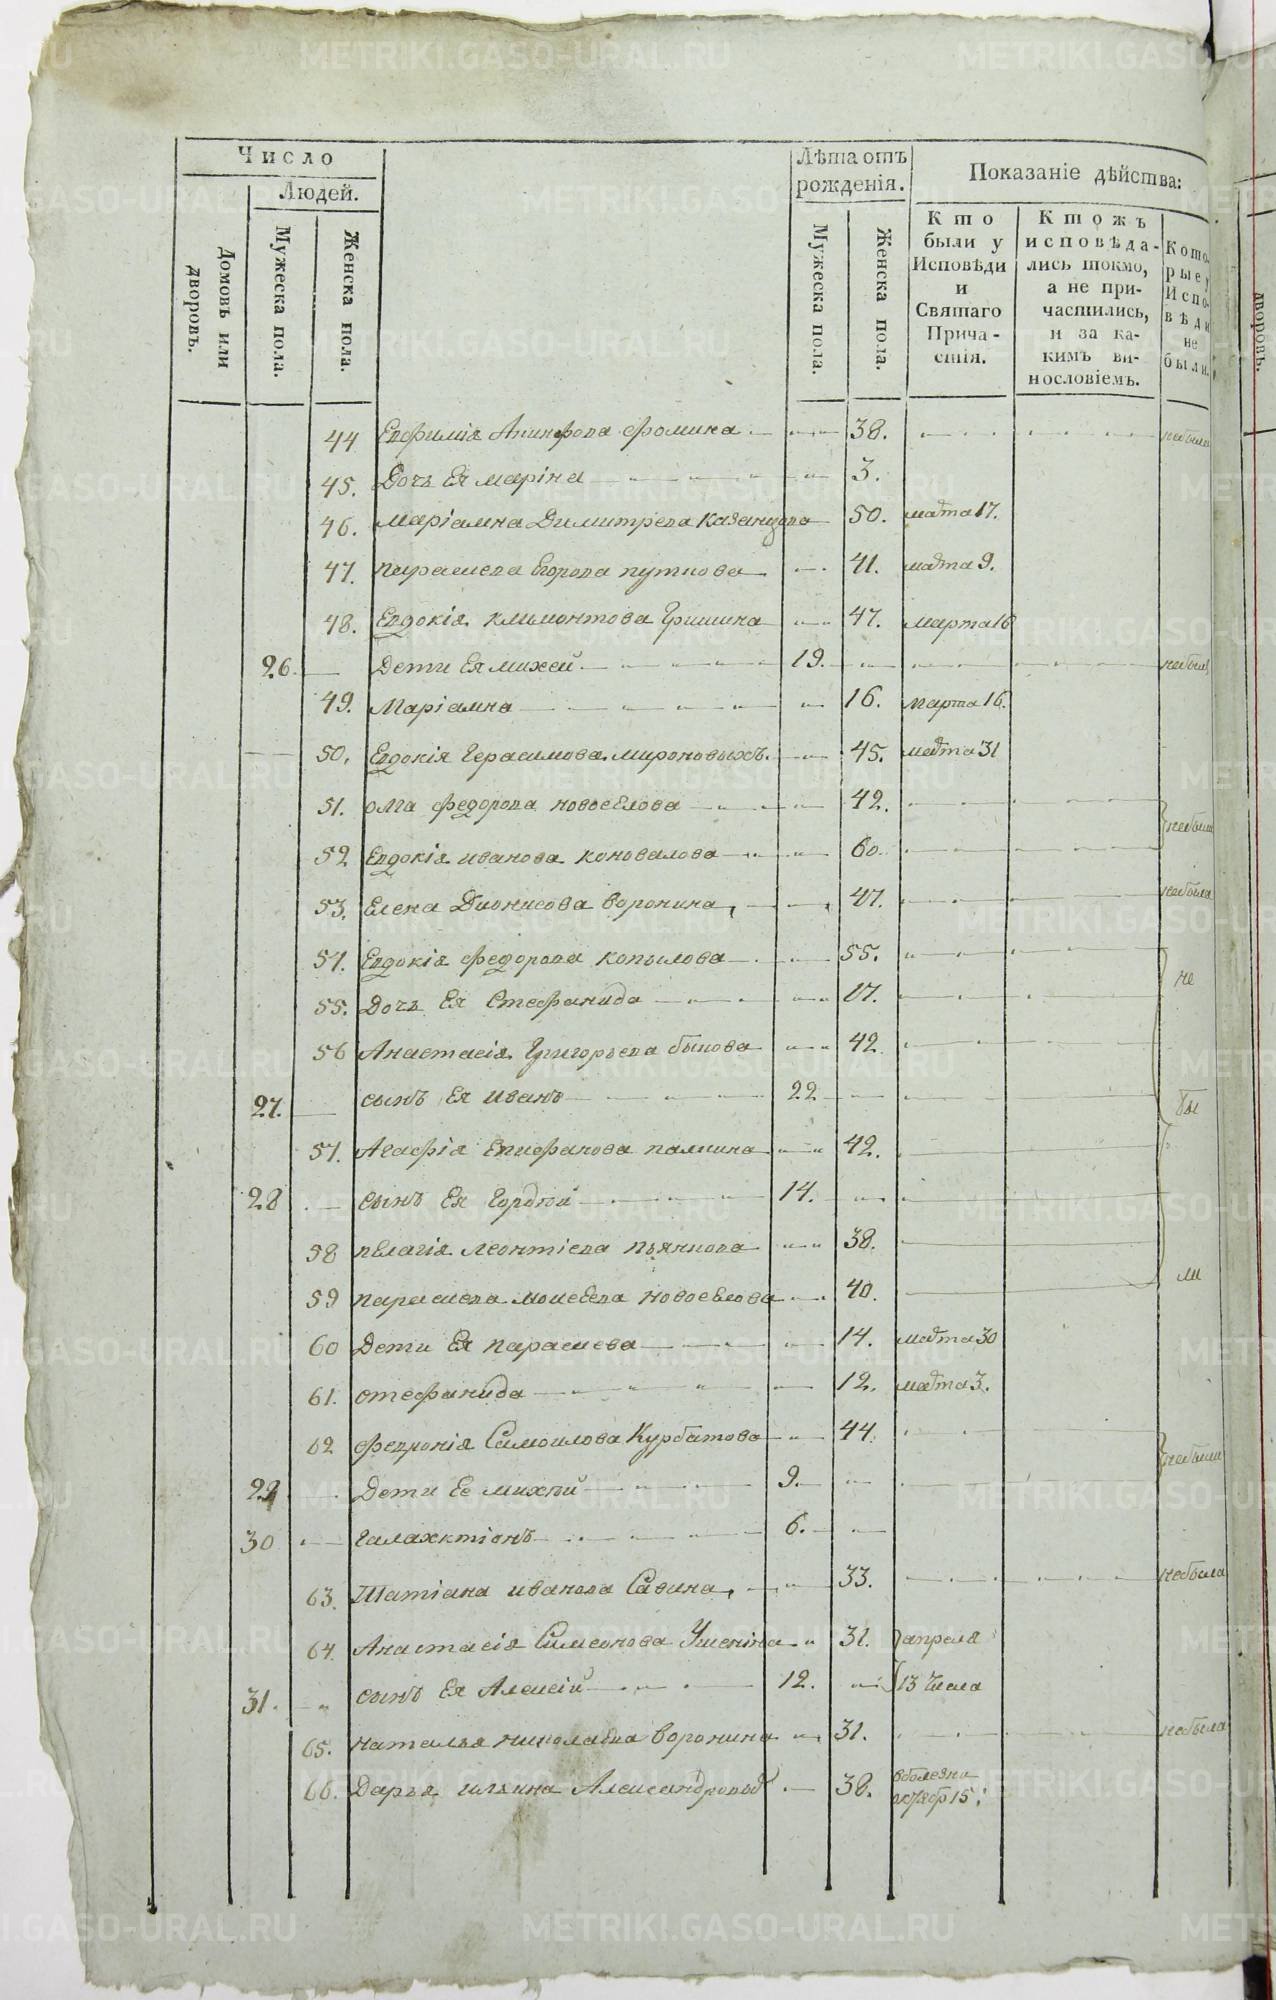 Число
Людей.
Домовъ или дворовъ.
Мужеска пола.
Женска пола.
Лѣта отъ рожденія.
Мужеска пола.
Женска пола.
Показаніе дѣйства:
Кто были у Исповѣди и Святаго Причастія.
Ктожъ исповѣдались токмо, а не причастились, и за какимъ винословіемъ.
Которые у Исповѣди не были.
дворовъ.
44 Евфимія Аникфова Фомина 38. небыли
45. Дочь Ея марина 3.
46. Маріамна Димитрева Казанцова 50. марта 17.
47. параскева Егорова путкова 41. марта 9.
48. Евдокія климонтова Гришина 47. марта 16
26. Дети Ея михей 19. небылъ
49. Маріамна 16. марта 16.
50. Евдокія Герасимова мироновыхъ. 45. марта 31
51. олга федорова новоселова 42. небыли
52 Евдокія иванова коновалова 60.
53. Елена Дионисова воронина, 47. небыла
54. Евдокія федорова копылова 55. не
55. Дочь Ея Стефанида 17.
56 Анастасія Григорьева быкова 42
27. сынъ Ея иванъ 22 бы
57. Агафія Епифанова палкина 42.
28 сынъ Ея Гордѣй 14.
58 пелагія леонтіева пьянкова 38.
59 параскева моисеева новоселова 40. ли
60 Дети Ея параскева 14. марта 30
61. стефанида 12. марта 3.
62 феврониія Самоилова Курбатова 44 небыли
29 Дети Ее михѣй 9.
30 галахктіонъ 6.
63. Татіана иванова Савина, 33. небыла
64. Анастасія Симеонова Ушенина 31. апреля
31. сынъ Ея Алексій 12. 13 Числа
65. наталья николаева воронина 31. небыла
66. Дарья ильина Александровой 38. вболезни
октябр 15.
METRIKI.GASO-URAL.RU